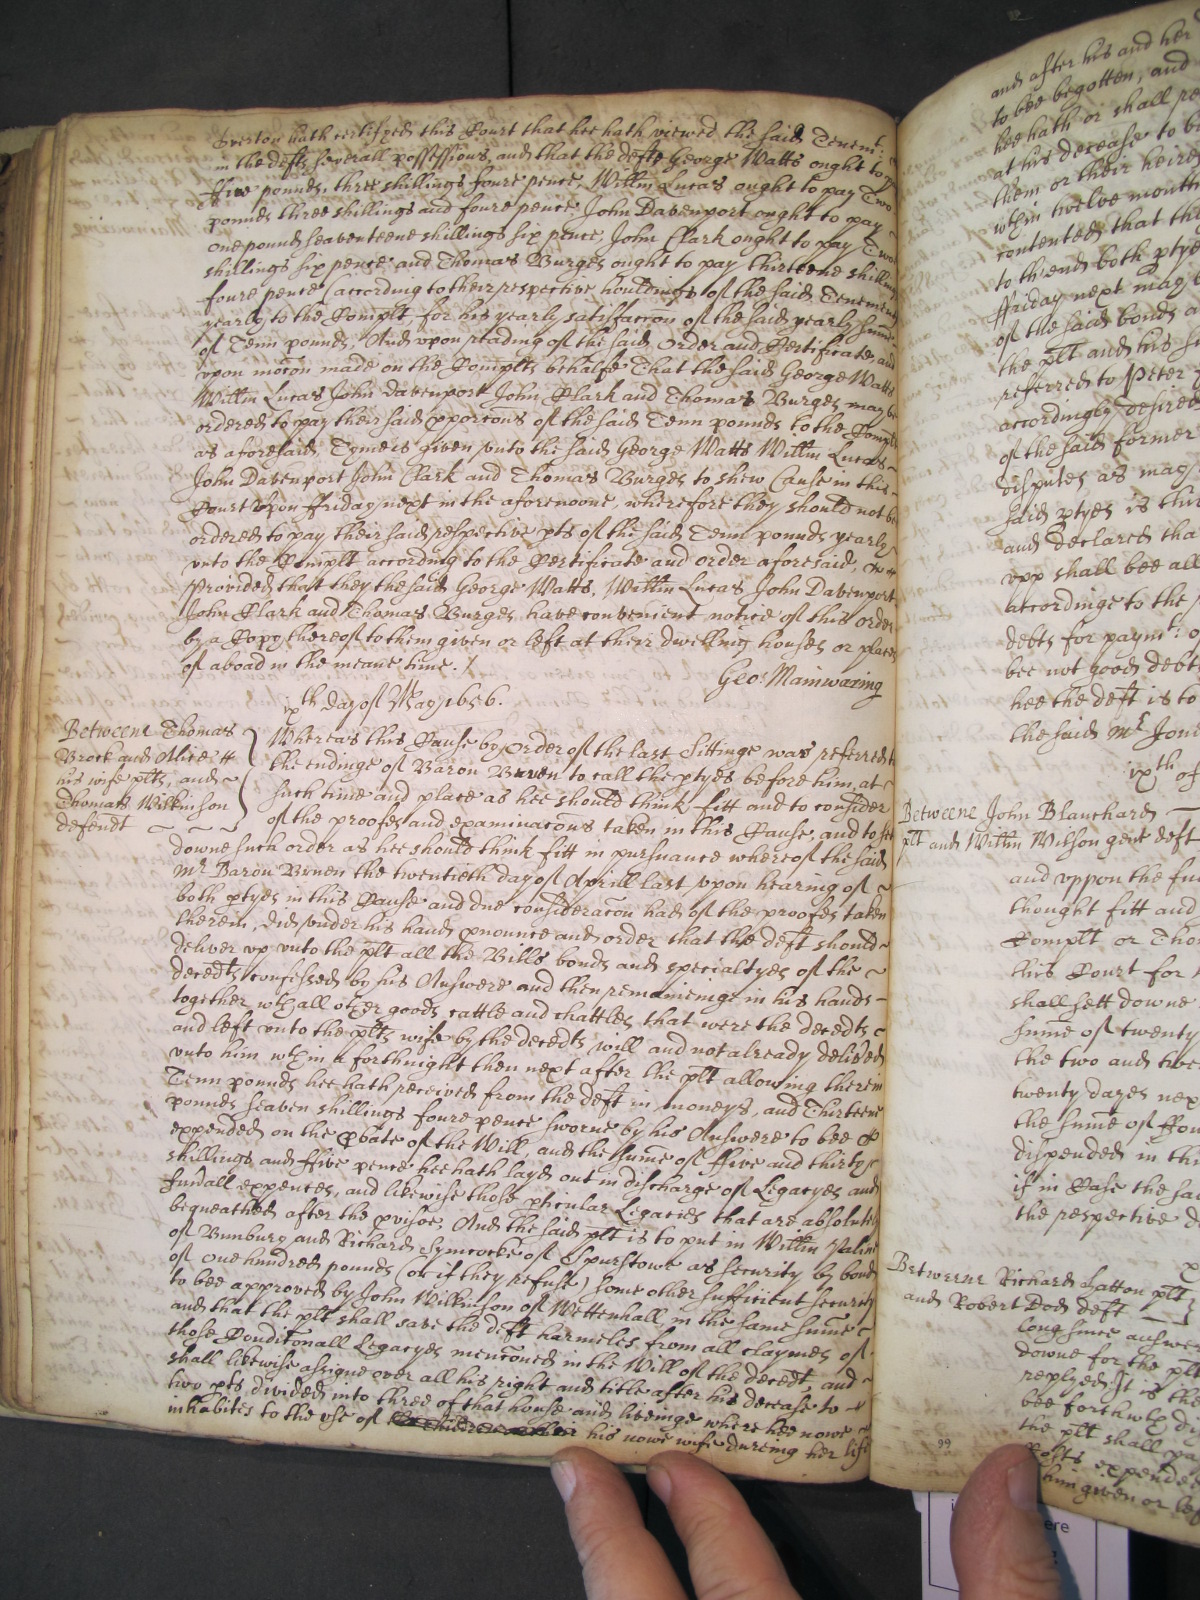 Preston hath certifyed this Court that hee hath viewed the said Tenemts
in the defts severall possessions, and that the defte George Watts ought to pay
ffive pounds three shillings foure pence, Willm Lucas ought to pay Two
pounds three shillings and foure pence, John Davenport ought to pay
one pound seaventeene shillings six pence, John Clark ought to pay Two
shillings six pence and Thomas Burges ought to pay thirteene shillings
foure pence (according to their respective houldings of the said Tenements
yearly to the Complt, for his yearly satisfaccon of the said yearly sume
of Tenn pounds, And upon reading of the said order and Certificate, and
upon mocon made on the Complts behalfe That the said George Watts
Willm Lucas John Davenport John Clark and Thomas Burges may be
ordered to pay their said pporcons of the said Tenn pounds to the Complt
as aforesaid, Tyme is given unto the said George Watts Willm Lucas
John Davenport John Clark and Thomas Burges to shew Cause in this
Court upon ffriday next in the aforenoone, wherefore they should not be
ordered to pay their said respective pts of the said Tenn pounds yearly
unto the Complt according to the Certificate and order aforesaid,
Provided that they the said George Watts, Willm Lucas John Davenport
John Clark and Thomas Burges have convenient notice of this order
by a Copy thereof to them given or left at their dwelling houses or places
of aboad in the meane time. /
Geo: Mainwaring
ixth day of May 1656.
Betweene Thomas
Brock and Alice
his wife plts, and
Thomas Wilkinson
defendt
Whereas this Cause by order of the last Sittinge was referred to
the endinge of Baron Bruen to call the ptyes before him, at
such time and place as hee should think fitt and to consider
of the proofes and examinacons taken in this Cause, and to sett
downe such order as hee should think fitt in pursuance whereof the said
Mr Baron Bruen the twentieth day of Aprill last upon hearing of
both ptyes in this Cause and due consideracon had of the proofes taken
therein, did under his hand pnounce and order that the deft should
deliver up unto the plt all the Bills bonds and specialtyes of the
decedts confessed by his Answere and then remaineinge in his hands
together wth all other goods cattle and chattles that were the decedts
and left unto the plts wife by the decedts will and not already delived
unto him wthin a forthnight then next after the plt allowing therein
Tenn pounds hee hath received from the deft in moneys, and Thirteene
pounds seaven shillings foure pence sworne by his Answere to bee
expended on the pbate of the Will, and the sume of ffive and thirty
shillings and ffive pence hee hath layd out in discharge of Legacyes and
funrall expences, and likewise those pticular Legacies that are absolutely
bequeathed after the pvisoe, And the said plt is to put in Willm
of Bunbury and Richard Symcocke of Spurstowe as security by bond
of one hundred pounds (or if they refuse) some other sufficient security
to bee approved by John Wilkinson of Wettenhall, in the same sume
and that the plt shall save the deft harmeles from all claymes of
those Conditonall Legacyes mencioned in the Will of the decedt, and
shall likewise assigne over all his right and title after his decease to
two pts divided into three of that house and liveinge where hee nowe
inhabites to the use of his nowe wife during her life
and after his and her
to bee begotten, and
hee hath or shall re
at his decease to b
them or their heires
wthin twelve month
contented that the
to th'end both ptyes
ffriday next may
of the said bonds a
the plt and his
referred to Peter
accordingly desired
of the said former
disputes as may
said ptyes is thi
and declared tha
upp shall bee all
accordinge to the
debts for paymt o
bee not good debts
hee the deft is to
the said Mr Jon
ixth of
Betweene John Blanchard
plt and Willm Wilson gent deft
and uppon the fu
thought fitt and
Complt or Tho
this Court for
shall sett downe
sume of twenty
the two and twe
twenty dayes nex
the sume of ffou
dispended in thi
if in Case the sa
the respective d
Betweene Richard Latton plt
and Robert Dod deft
long since answer
downe for the plt
replyed It is the
bee forthwth di
the plt shall pa
Costs expended
him given or lef
99
ere